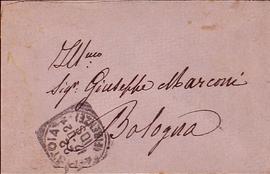 Ill.mo
Sig.r Giuseppe Marconi
Bologna